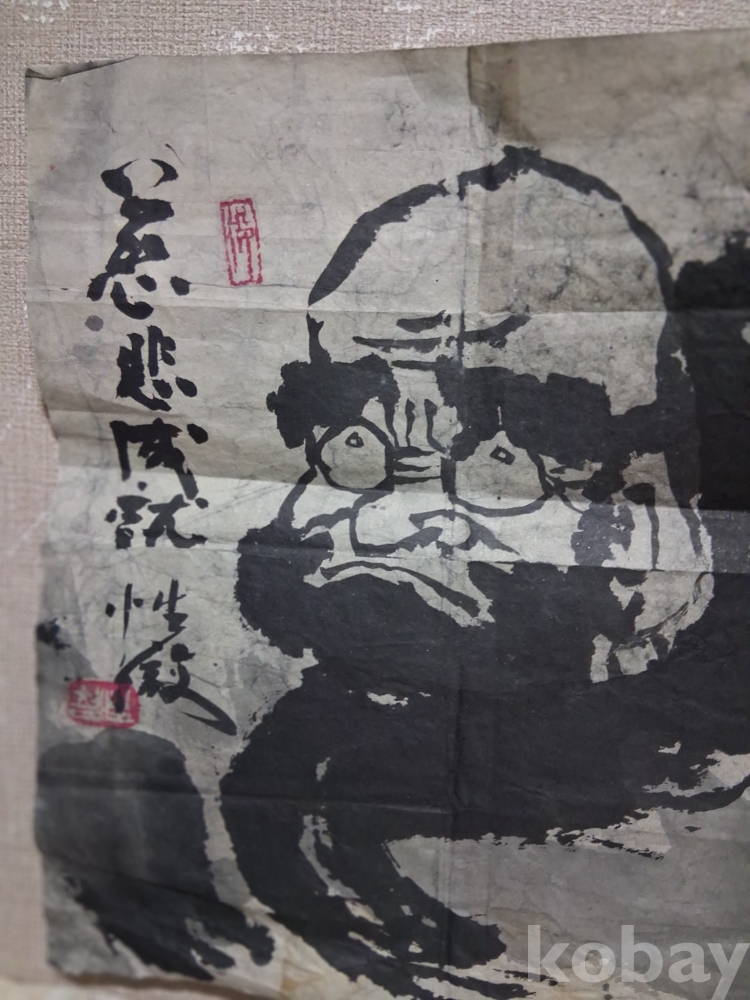 慈悲成就
性徹
kobay